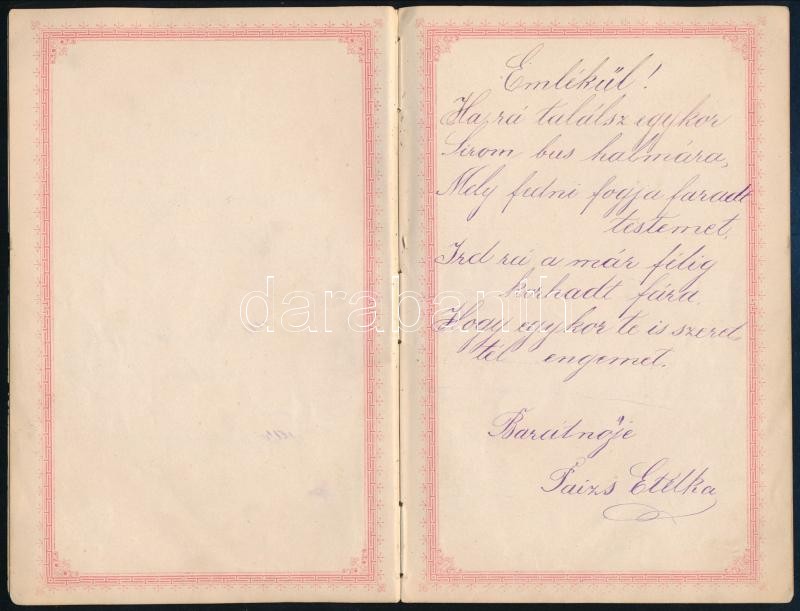 Emlékül!
Ha rá találsz egykor
Sirom bus halmára,
Mely fedni fogja faradt
testemet,
Ird rá a már félig
korhadt fára.
Hogy egykor te is szeret
tél engemet.
Barátnője
Paizs Etelka
darabanth